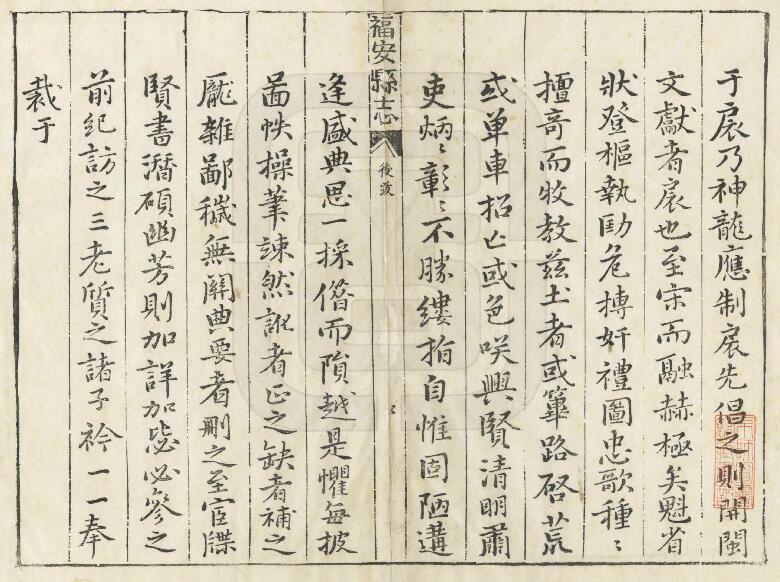 于扆乃神龍應制扆先倡之則開閩
文獻者扆也至宋而融赫極矣魁省
狀登樞執勛危摶奸禮圖忠歌種〻
擅奇而牧教兹土者或篳路啓荒
或单車招亡或色咲興賢清明肅
吏炳〻彰〻不勝縷指自惟固陋遘
福安縣志
後跋
二
逢盛典思一採僃而隕越是懼每披
啚帙操筆竦然訛者正之缺者補之
厖雜鄙穢無關典要者刪之至宦牒
賢書潛碩幽芳則加詳加毖必叅之
前紀訪之三老質之諸子衿一一奉
裁于